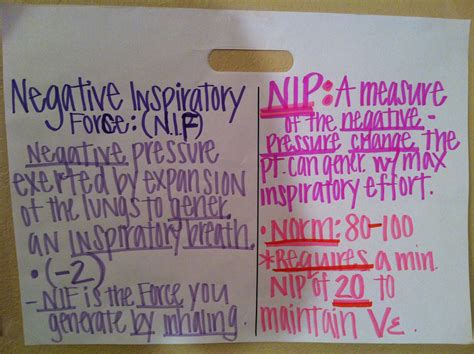 Negative Inspiratory
Force: (N.I.F)
Negative pressure
exerted by expansion
of the lungs to gener.
an inspiratory breath.
• (-2)
- NIF is the Force you
generate by inhaling.
NIP: A measure
of the negative-
pressure change, the
pt. can gener. w/ max
inspiratory effort.
• Norm: 80-100
*Requires a min
NIP of 20 to
maintain VE